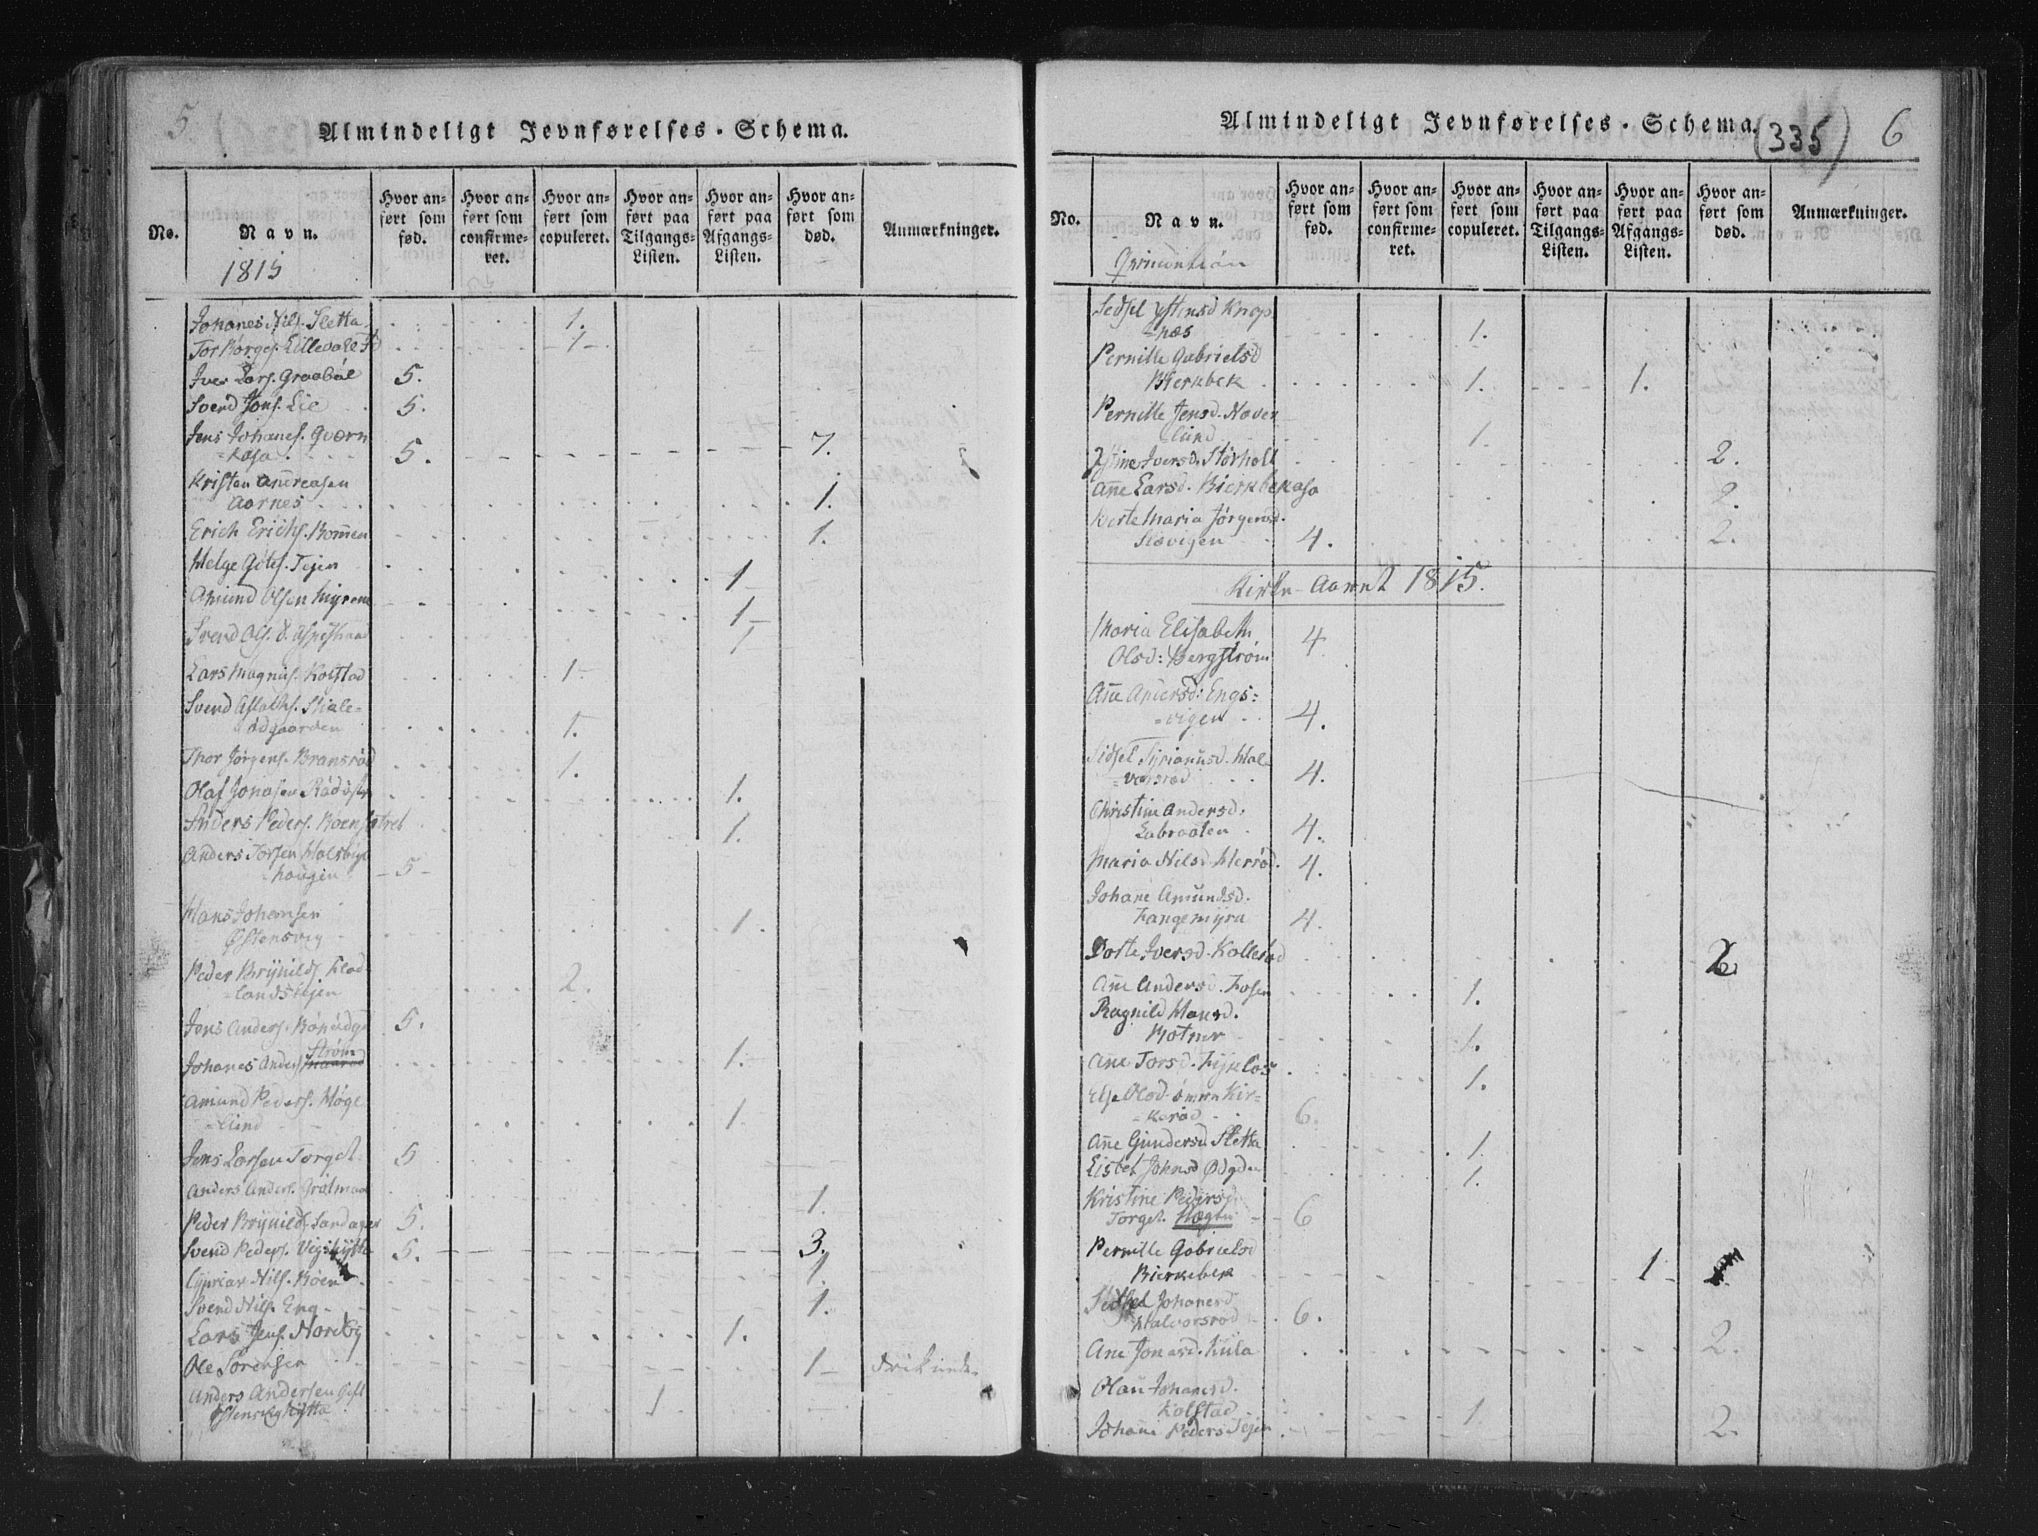 5
Almindeligt Jevnførelses-Schema.
No.
Navn.
Hvor anført som fød.
Hvor anført som confirmeret.
Hvor anført som copuleret.
Hvor anført paa Tilgangs-Listen.
Hvor anført paa Afgangs-Listen.
Hvor anført som død.
Anmærkninger.
1815
Johanes Nils. Sletta 1.
Tor Børges. Lillevold 1
Iver Lars. Graabøl 5.
Svend Jons. Lie 5.
Jens Johanes. Qværn
=kasa 5. 7.
Kristen Andreasen
Aarnes 1.
Erich Erichs. Bommen 1.
Helge Tejen 1
Amund Olsen Myrene 1
Svend Ols. 1
Lars Magnus. Kolstad 1
Svend Aslachs. Skale=
ødgaarden 1.
Thor Jørgens. Bransrød 1.
Olaf Jonasen 1.
Anders Peders. 1.
Anders Torsen
haugen 5
Hans Johansen
Østensvig 1.
Peder Brynilds. Flod
landstejen 2.
Jens Anders. 5.
Strøm
Johanes Anders. 1.
Amund Peders. Høge
=lund 1.
Jens Larsen Torget 5
Anders Anders. 1.
Peder Brynilds. Sandager 5.
Svend Peders. Vigskytte 5. 3.
Cyprian Nils. Roen 1.
Svend Nils. Eng 1.
Lars Jens. Nordby 1.
Ole Sørensen 1
Anders Andersen
Østensvighytta 1
Almindeligt Jevnførelses-Schema.
(335)
6
No.
Navn.
Hvor anført som fød.
Hvor anført som confirmeret.
Hvor anført som copuleret.
Hvor anført paa Tilgangs-Listen.
Hvor anført paa Afgangs-Listen.
Hvor anført som død.
Anmærkninger.
Qvindekiøn
Sidsel Knap
=næs 1.
Pernille Gabrielsd
Bierkbek 1. 1.
Pernille Jensd. Haver
=lund 1.
Istine Iversd. Størholt 2.
Anne Larsd. Bierkbekasa 2.
Berte Maria Jørgensd.
Slævigen 4. 2.
Kirke-Aaret 1815.
Maria Elisabeth
Olsd: Bergstrøm 4
Anne Andersd: Engs=
=vigen 4.
Sidsel Halvorsrød 4.
Christine Andersd.
Labraaten 4.
Maria Nilsd Herrød. 4.
Johane Amundsd.
Langemyra 4.
Dorte Iversd. Kollerød 2.
Anne Andersd. Fosen 1.
Ragnild Hansd.
Botner 1.
Ane Torsd. 1.
Else Olsd. Kir=
=kerød 6.
Anne Gundersd. Sletta 1.
Lisbet Johnsd 1.
Kristine Pedersd
Torget. 6
Pernille Gabrielsd
Bierkebek 1
Sidsel Johanesd
Halvorsrød 6.
Ane Jonasd. Hula 2.
Olau Johanesd.
Kolstad 1
Johane Peders Tejen 2.